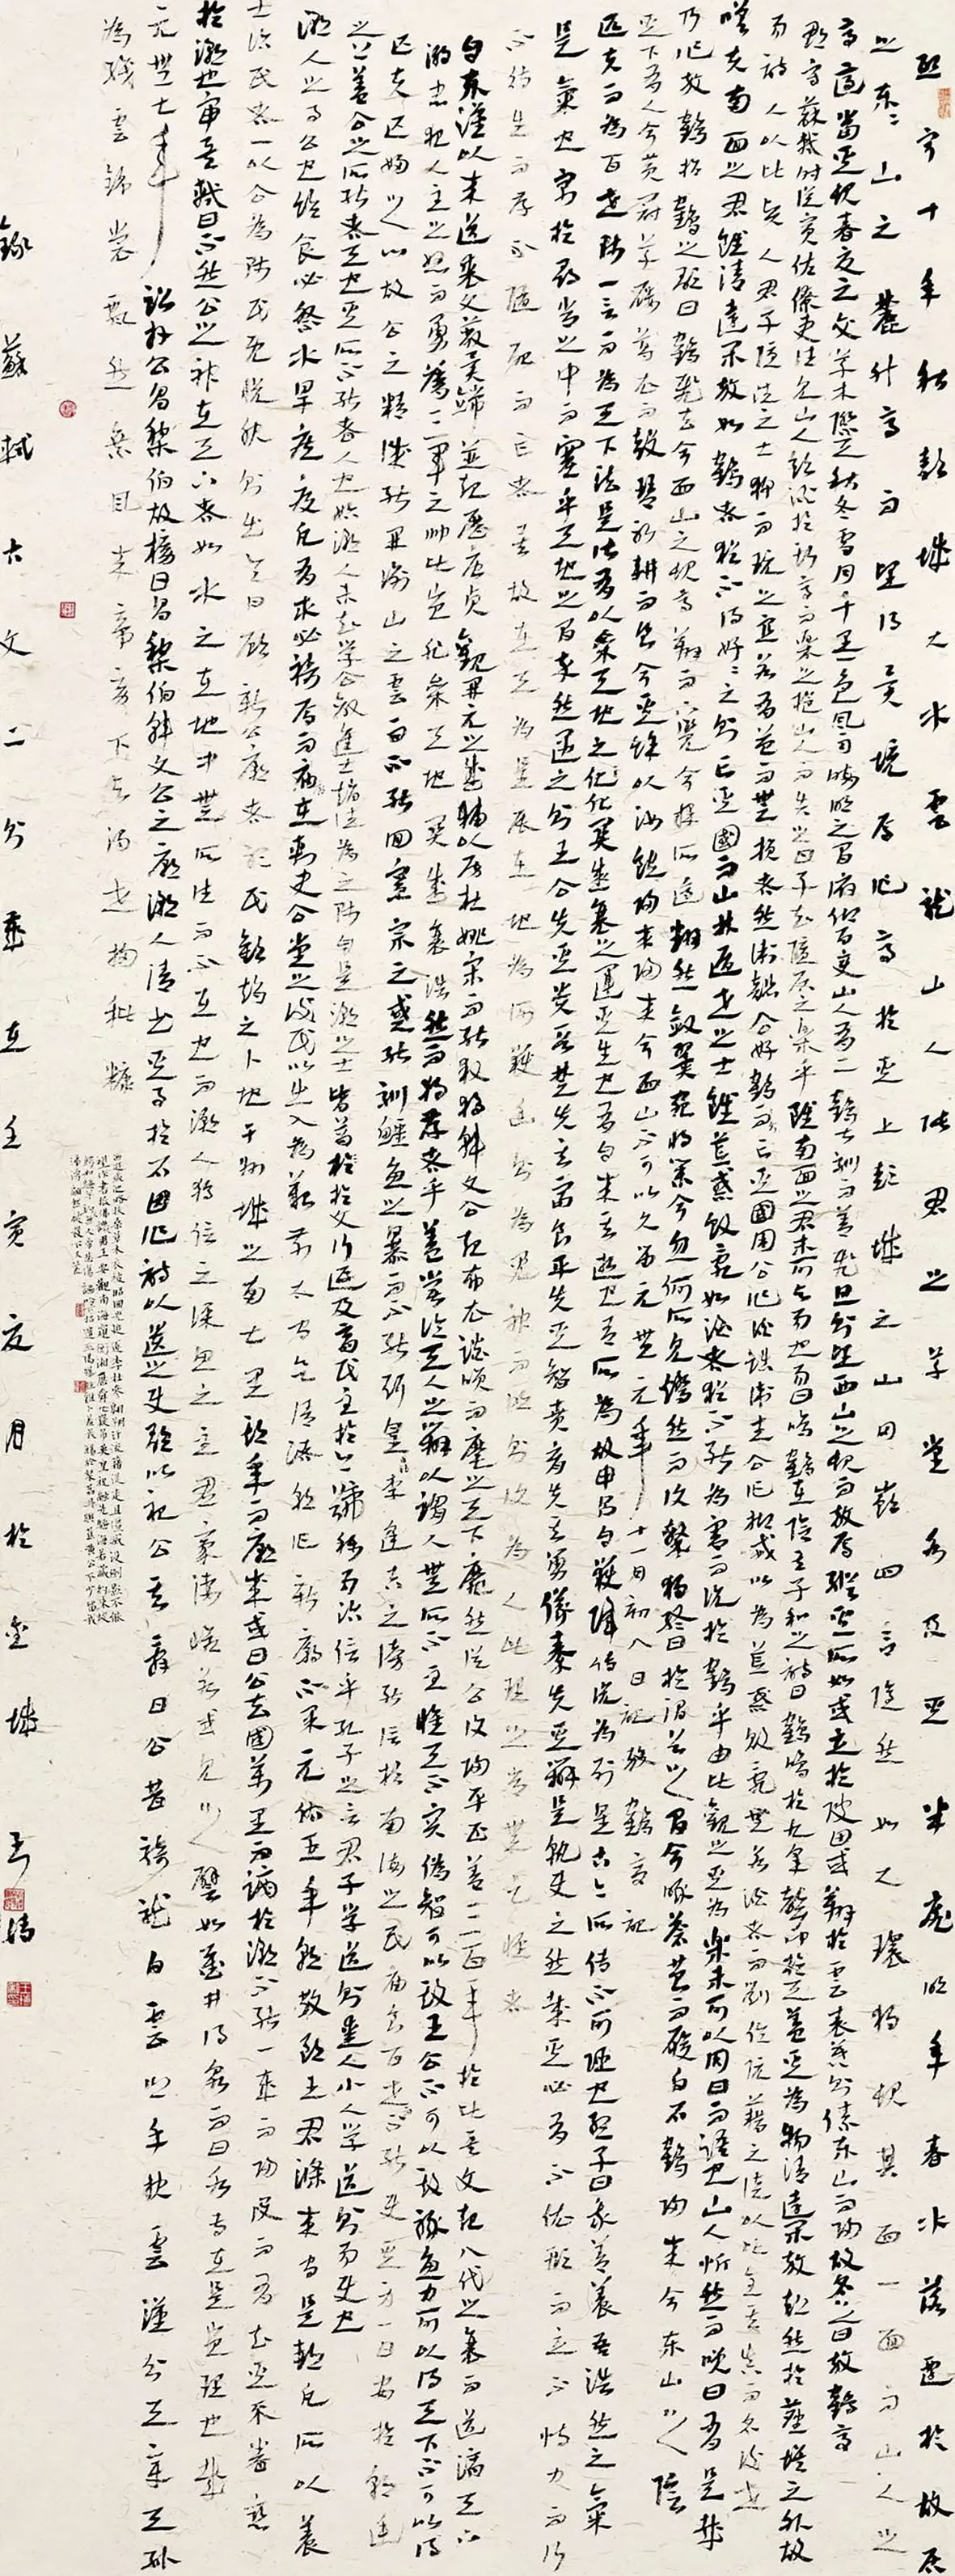 熙寧十年秋彭城大水雲龍山人張君之草堂水及其半扉明年春水落遷於故居
之東東山之麓升高而望得異境焉作亭於其上彭城之山岡嶺四合隱然如大環獨缺其西一面而山人之
亭適當其缺春夏之交草木際天秋冬雪月千里一色風雨晦明之間俯仰百變山人有二鶴甚馴而善飛旦則望西山之缺而放焉縱其所如或立於陂田或翔於雲表暮則傃東山而歸故名之曰放鶴亭
郡守蘇軾時從賓佐僚吏往見山人飲酒於斯亭而樂之挹山人而告之曰子知隱居之樂乎雖南面之君未可與易也易曰鳴鶴在陰其子和之詩曰鶴鳴於九皋聲聞於天蓋其為物清遠閑放超然於塵埃之外故
易詩人以比賢人君子隱德之士狎而玩之宜若有益而無損者然衛懿公好鶴則亡其國周公作酒誥衛武公作抑戒以為荒惑敗亂無若酒者而劉伶阮籍之徒以此全其真而名後世
嗟夫南面之君雖清遠閑放如鶴者猶不得好好之則亡其國而山林遁世之士雖荒惑敗亂如酒者猶不能為害而況於鶴乎由此觀之其為樂未可以同日而語也山人忻然而笑曰有是哉
乃作放鶴招鶴之歌曰鶴飛去兮西山之缺高翔而下覽兮擇所適翻然斂翼宛將集兮忽何所見矯然而復擊獨終日於澗谷之間兮啄蒼苔而履白石鶴歸來兮東山之陰
其下有人兮黃冠草屨葛衣而鼓琴躬耕而食兮其餘以汝飽歸來歸來兮西山不可以久留元豐元年十一月初八日記放鶴亭記
匹夫而為百世師一言而為天下法是皆有以參天地之化關盛衰之運其生也有自來其逝也有所為故申呂自嶽降傅說為列星古今所傳不可誣也孟子曰我善養吾浩然之氣
是氣也寓於尋常之中而塞乎天地之間卒然遇之則王公失其貴晉楚失其富良平失其智賁育失其勇儀秦失其辯是孰使之然哉其必有不依形而立不恃力而行
不待生而存不隨死而亡者矣故在天為星辰在地為河嶽幽則為鬼神而明則復為人此理之常無足怪者
自東漢以來道喪文弊異端並起歷唐貞觀開元之盛輔以房杜姚宋而不能救獨韓文公起布衣談笑而麾之天下靡然從公復歸於正蓋三百年於此矣文起八代之衰而道濟天下
之溺忠犯人主之怒而勇奪三軍之帥此豈非參天地關盛衰浩然而獨存者乎蓋嘗論天人之辨以謂人無所不至惟天不容偽智可以欺王公不可以欺豚魚力可以得天下不可以得
匹夫匹婦之心故公之精誠能開衡山之雲而不能回憲宗之惑能馴鱷魚之暴而不能弭皇甫鎛李逢吉之謗能信於南海之民廟食百世而不能使其身一日安於朝廷
之上蓋公之所能者天也其所不能者人也始潮人未知學公命進士趙德為之師自是潮之士皆篤於文行延及齊民至於今號稱易治信乎孔子之言君子學道則愛人小人學道則易使也
潮人之事公也飲食必祭水旱疾疫凡有求必禱焉而廟在刺史公堂之後民以出入為艱前太守欲請諸朝作新廟不果元祐五年朝散郎王君滌來守是邦凡所以養
士治民者一以公為師民既悅服則出令曰願新公廟者聽民歡趨之卜地於州城之南七里期年而廟成或曰公去國萬里而謫於潮不能一歲而歸沒而有知其不眷戀
於潮也審矣軾曰不然公之神在天下者如水之在地中無所往而不在也而潮人獨信之深思之至焄蒿悽愴若或見之譬如鑿井得泉而曰水專在是豈理也哉
元豐七年詔封公昌黎伯故榜曰昌黎伯韓文公之廟潮人請書其事於石因作詩以遺之使歌以祀公其辭曰公昔騎龍白雲鄉手抉雲漢分天章天孫
為織雲錦裳飄然乘風來帝旁下與濁世掃秕糠
錄蘇軾古文二則